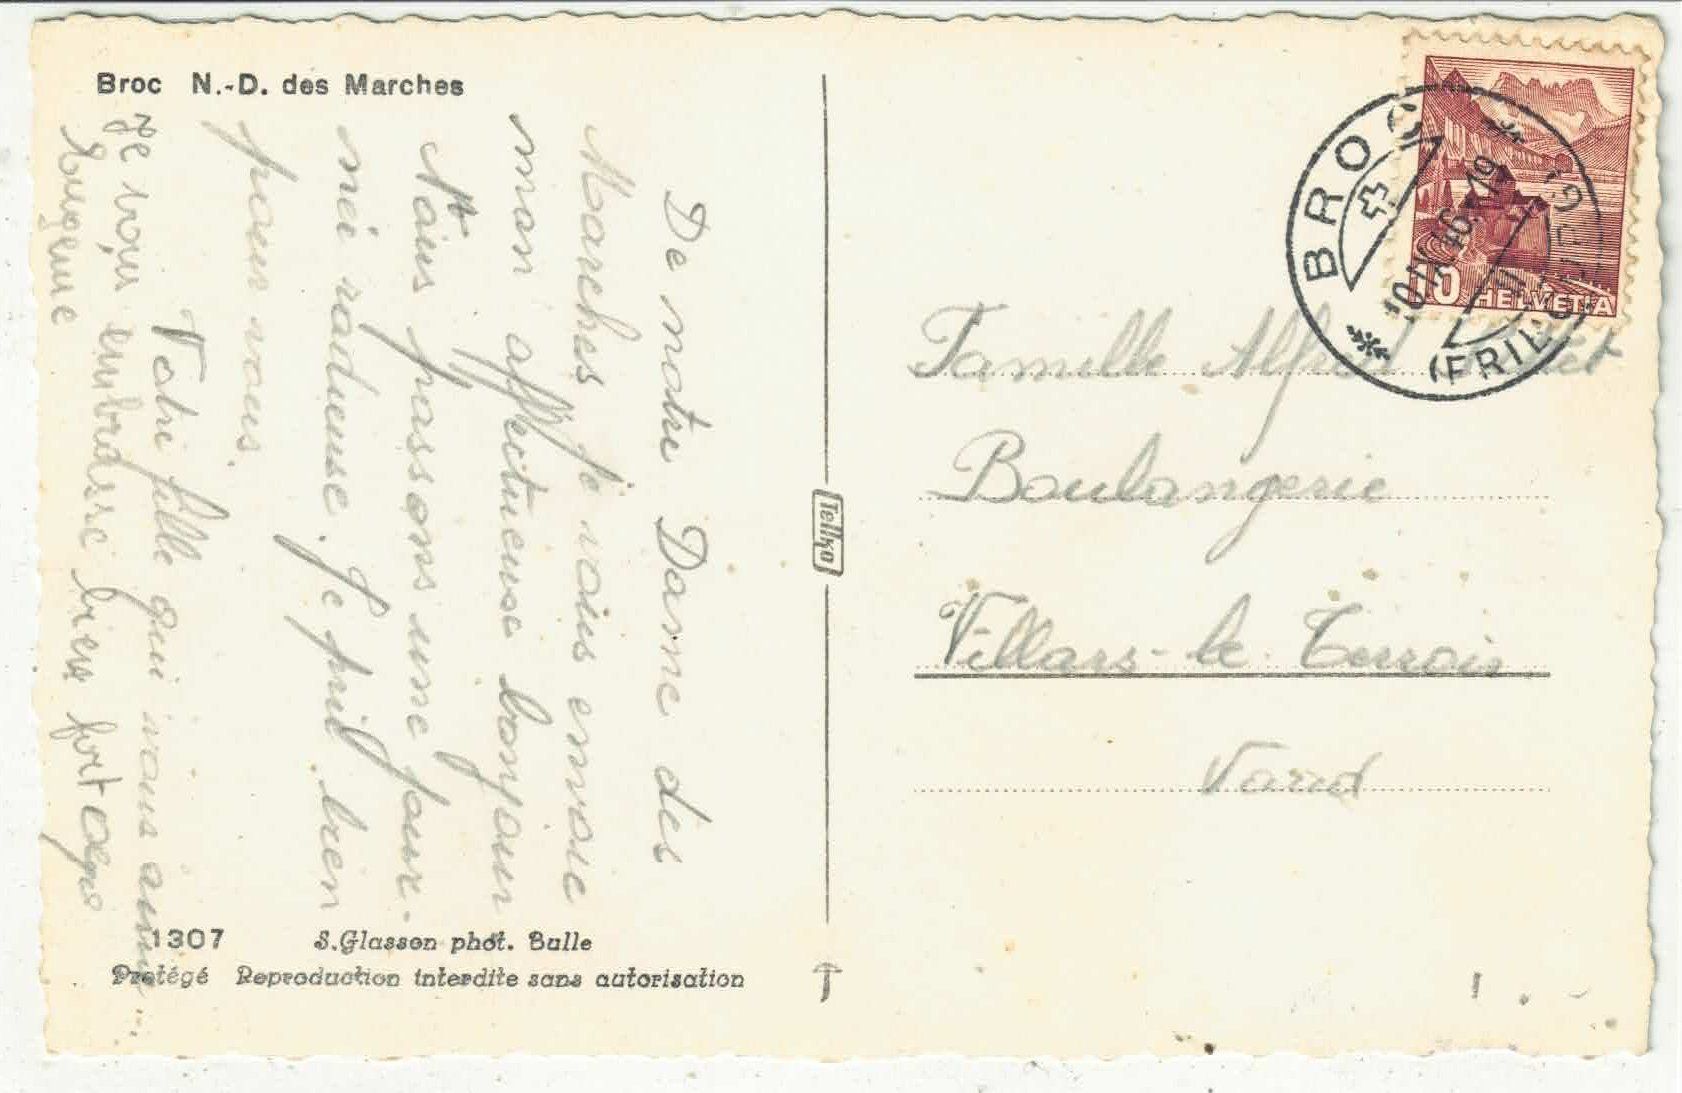 Broc N.-D. des Marches
De notre Dame des
Marches je vous envoie
mon affectueuse bonjour
Nous passons une jour-
née radieuse. Je prie bien
pour vous.
Votre fille qui vous aime
Je vous embrasse bien fort
Eugénie
1307 S. Glasson phot. Bulle
Protégé Reproduction interdite sans autorisation
Tellko
BROC
10.IX.46.-19
(FRIBOURG)
10 HELVETIA
Famille Alfred
Boulangerie
Villars-le-Terroir
Vaud